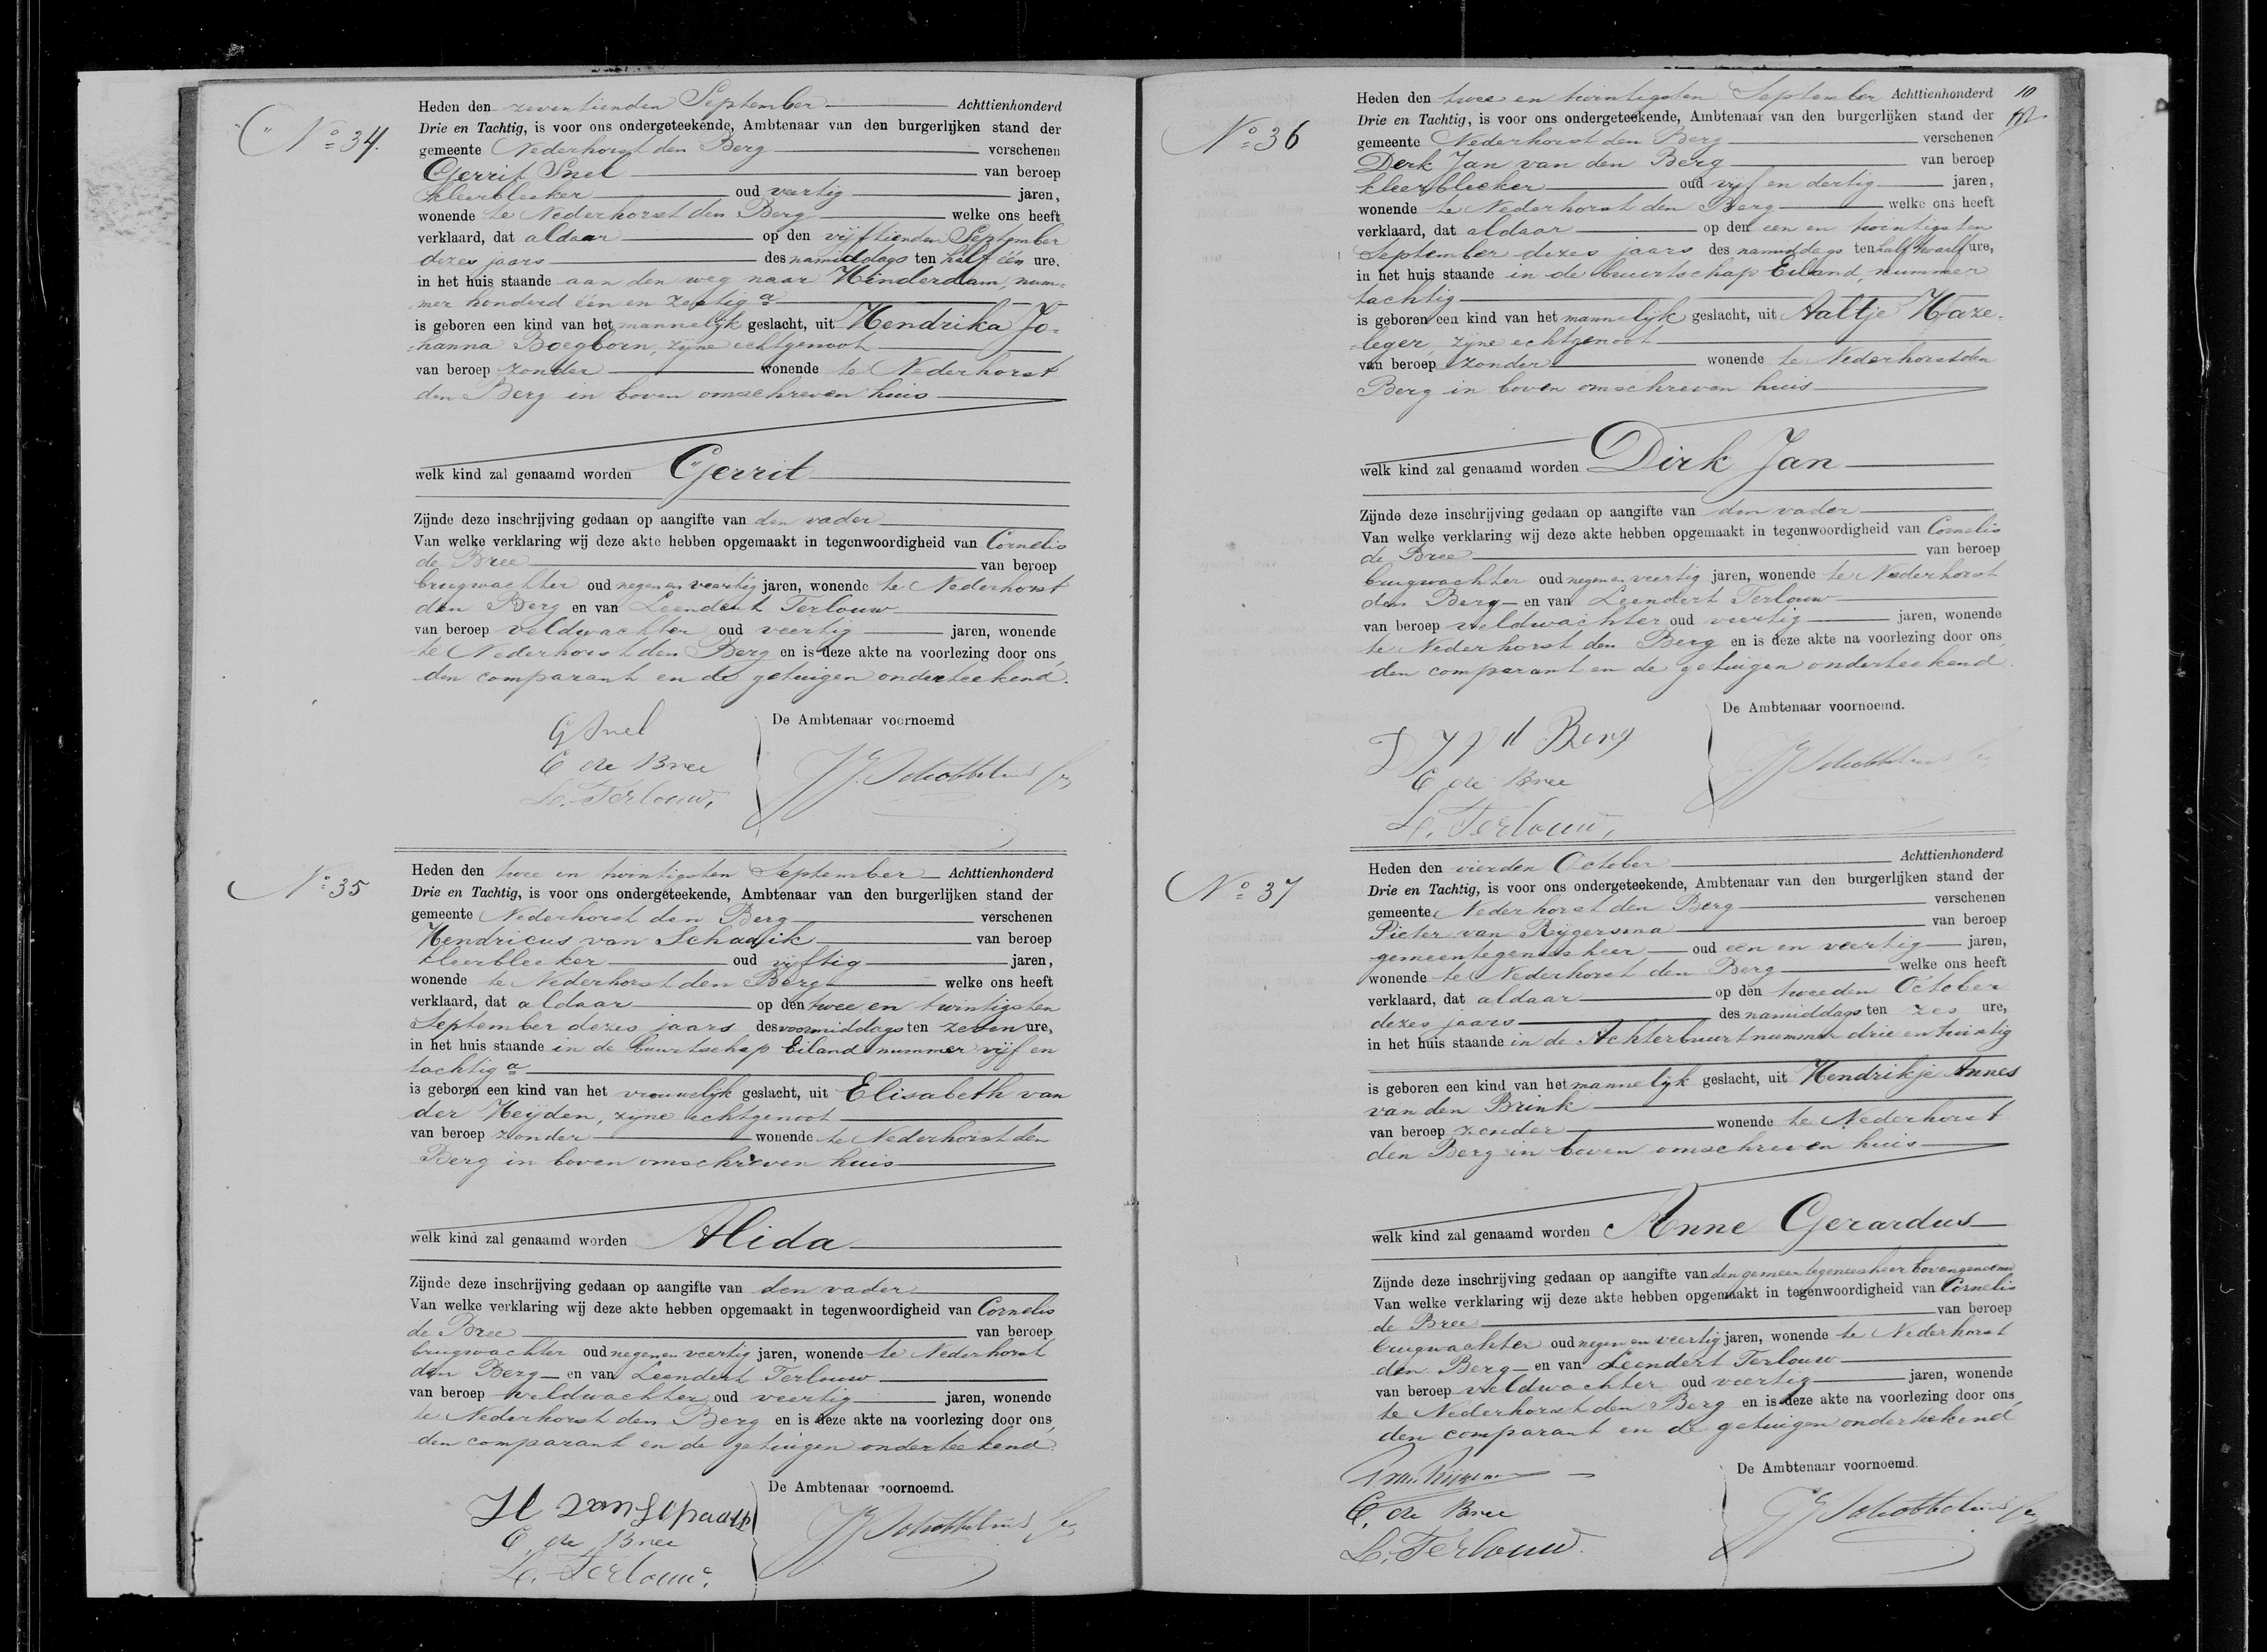 No 34.
Heden den zeventienden September Achttienhonderd
Drie en Tachtig, is voor ons ondergeteekende, Ambtenaar van den burgerlijken stand der
gemeente Nederhorst den Berg verschenen
Gerrit Snel van beroep
kleerbleeker oud veertig jaren,
wonende te Nederhorst den Berg welke ons heeft
verklaard, dat aldaar op den vijftienden September
dezes jaars des namiddags ten half één ure,
in het huis staande aan den weg naar Hinderdam, num=
mer honderd één en zestig a
is geboren een kind van het mannelijk geslacht, uit Hendrika Jo=
=hanna Boegborn, zijne echtgenoot
van beroep zonder wonende te Nederhorst
den Berg in boven omschreven huis
welk kind zal genaamd worden Gerrit
Zijnde deze inschrijving gedaan op aangifte van den vader
Van welke verklaring wij deze akte hebben opgemaakt in tegenwoordigheid van Cornelis
de Bree van beroep
brugwachter oud negen en veertig jaren, wonende te Nederhorst
den Berg en van Leendert Terlouw
van beroep veldwachter oud veertig jaren, wonende
te Nederhorst den Berg en is deze akte na voorlezing door ons,
den comparant en de getuigen onderteekend.
De Ambtenaar voornoemd
G Snel
C de Bree
L. Terlouw,
No 35
Heden den twee en twintigsten September Achttienhonderd
Drie en Tachtig, is voor ons ondergeteekende, Ambtenaar van den burgerlijken stand der
gemeente Nederhorst den Berg verschenen
Hendricus van Schadik van beroep
kleerbleeker oud vijftig jaren,
wonende te Nederhorst den Berg welke ons heeft
verklaard, dat aldaar op den twee en twintigsten
September dezes jaars des voormiddags ten zeven ure,
in het huis staande in de buurtschap Eiland nummer vijf en
tachtig a
is geboren een kind van het vrouwelijk geslacht, uit Elisabeth van
der Heijden, zijne echtgenoot
van beroep zonder wonende te Nederhorst den
Berg in boven omschreven huis
welk kind zal genaamd worden Alida
Zijnde deze inschrijving gedaan op aangifte van den vader
Van welke verklaring wij deze akte hebben opgemaakt in tegenwoordigheid van Cornelis
de Bree van beroep
brugwachter oud negen en veertig jaren, wonende te Nederhorst
den Berg en van Leendert Terlouw
van beroep veldwachter oud veertig jaren, wonende
te Nederhorst den Berg en is deze akte na voorlezing door ons,
den comparant en de getuigen onderteekend.
De Ambtenaar voornoemd.
H van
C. de Bree
L. Terlouw.
10
No 36
Heden den twee en twintigsten September Achttienhonderd
Drie en Tachtig, is voor ons ondergeteekende, Ambtenaar van den burgerlijken stand der
gemeente Nederhorst den Berg verschenen
Derk Jan van den Berg van beroep
kleerbleeker oud vijf en dertig jaren,
wonende te Nederhorst den Berg welke ons heeft
verklaard, dat aldaar op den een en twintigsten
September dezes jaars des namiddags ten half twaalf ure,
in het huis staande in de buurtschap Eiland, nummer
tachtig
is geboren een kind van het mannelijk geslacht, uit Aaltje Haze=
=leger, zijne echtgenoot
van beroep zonder wonende te Nederhorst den
Berg in boven omschreven huis
welk kind zal genaamd worden Dirk Jan
Zijnde deze inschrijving gedaan op aangifte van den vader
Van welke verklaring wij deze akte hebben opgemaakt in tegenwoordigheid van Cornelis
de Bree van beroep
brugwachter oud negen en veertig jaren, wonende te Nederhorst
den Berg en van Leendert Terlouw
van beroep veldwachter oud veertig jaren, wonende
te Nederhorst den Berg en is deze akte na voorlezing door ons,
den comparant en de getuigen onderteekend.
De Ambtenaar voornoemd.
D J v d Berg
C de Bree
L. Terlouw,
No 37
Heden den vierden October Achttienhonderd
Drie en Tachtig, is voor ons ondergeteekende, Ambtenaar van den burgerlijken stand der
gemeente Nederhorst den Berg verschenen
Pieter van Rijgersma van beroep
gemeentegeneesheer oud een en veertig jaren,
wonende te Nederhorst den Berg welke ons heeft
verklaard, dat aldaar op den tweeden October
dezes jaars des namiddags ten zes ure,
in het huis staande in de Achterbuurt nummer drie en twintig
is geboren een kind van het mannelijk geslacht, uit Hendrikje Annes
van den Brink
van beroep zonder wonende te Nederhorst
den Berg in boven omschreven huis
welk kind zal genaamd worden Anne Gerardus
Zijnde deze inschrijving gedaan op aangifte van den gemeentegeneesheer bovengenoemd
Van welke verklaring wij deze akte hebben opgemaakt in tegenwoordigheid van Cornelis
de Bree van beroep
brugwachter oud negen en veertig jaren, wonende te Nederhorst
den Berg en van Leendert Terlouw
van beroep veldwachter oud veertig jaren, wonende
te Nederhorst den Berg en is deze akte na voorlezing door ons,
den comparant en de getuigen onderteekend
De Ambtenaar voornoemd.
C. de Bree
L. Terlouw.